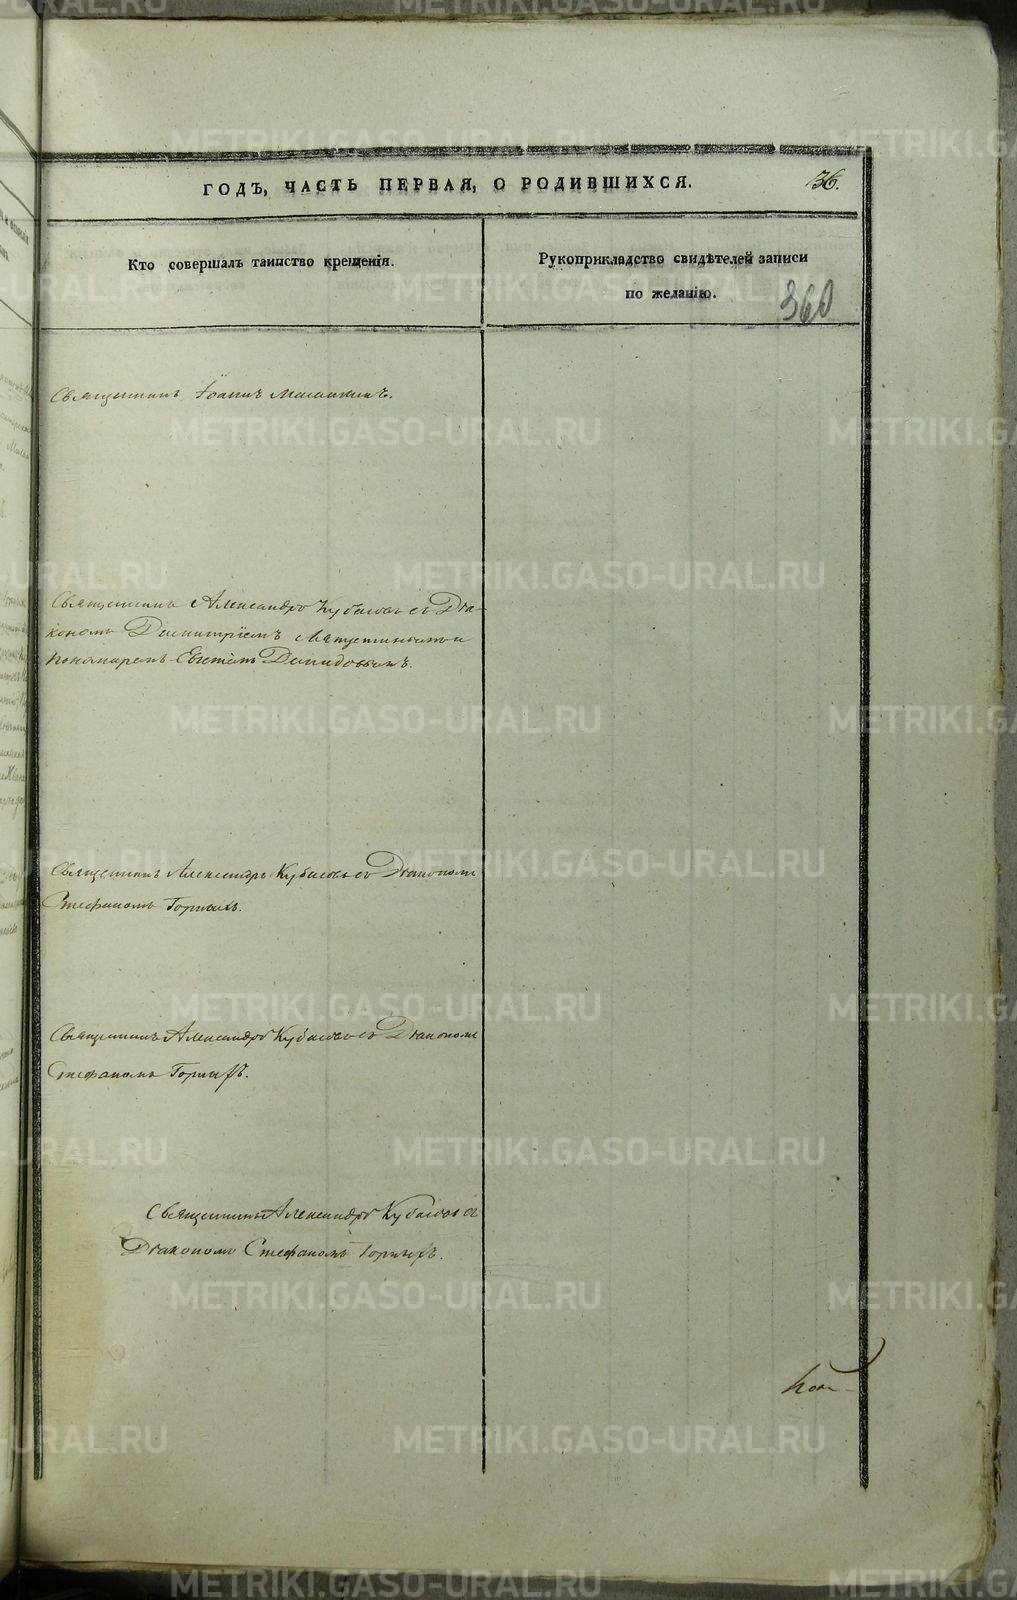 ГОДЪ, ЧАСТЬ ПЕРВАЯ, О РОДИВШИХСЯ.
36.
Кто совершалъ таинство крещенія.
Рукоприкладство свидѣтелей записи
по желанію.
360
Священникъ Іоаннъ
Священникъ Александръ Кубасовъ съ Діа-
кономъ Димитріемъ
пономаремъ
Священникъ Александръ Кубасовъ съ Діакономъ
Стефаномъ Горныхъ.
Священникъ Александръ Кубасовъ съ Діакономъ
Стефаномъ Горныхъ.
Священникъ Александръ Кубасовъ съ
Діакономъ Стефаномъ Горныхъ.
METRIKI.GASO-URAL.RU